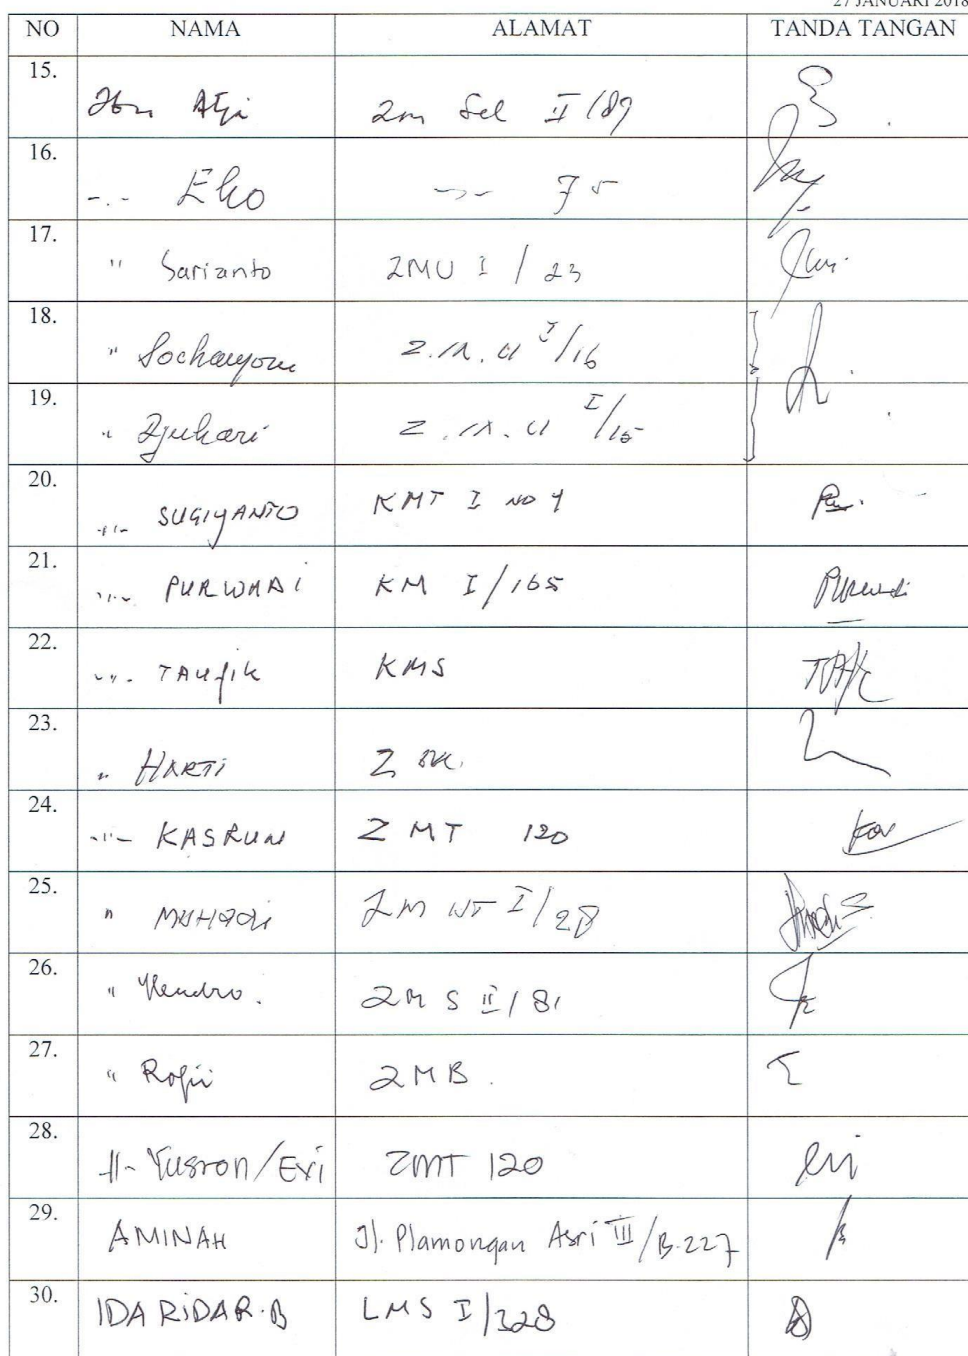 27 JANUARI 2018
NO NAMA ALAMAT TANDA TANGAN
15. Ibu Atji 2m Sel II/89
16. -.- Eko -"- 75
17. " Sarianto 2MU I / 23
18. " Z.M.U I/16
19. " Djuhari Z.M.U I/15
20. -"- SUGIYANTO KMT I NO 4
21. -"- PURWADI KM I/165
22. -"- TAUfik KMS
23. " HARTI Z
24. -"- KASRUN Z MT 120
25. " MUHADI 2M UT I/28
26. " Hendro. 2M S II/81
27. " Rofii 2MB.
28. -"- Yusron/Evi ZMT 120
29. AMINAH Jl. Plamongan Asri III/B.227
30. IDA RIDAR.B LMS I/328